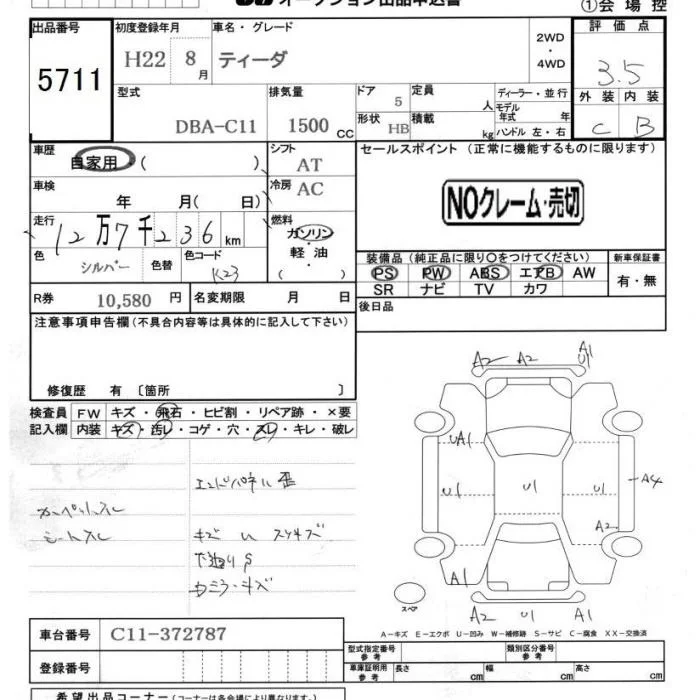 オークション出品申込書
①会場控
出品番号 初度登録年月 車名・グレード 2WD・4WD 評価点
5711 H22 8月 ティーダ 3.5
型式 排気量 ドア 定員 ディーラー・並行 外装 内装
DBA-C11 1500cc 5 人 モデル年式 年 C B
形状 HB 積載 kg ハンドル 左・右
車歴 自家用・( ) シフト AT セールスポイント (正常に機能するものに限ります)
車検 年 月( 日) 冷房 AC
NOクレーム・売切
走行 12万7千236km 燃料 ガソリン・軽油 ( )
色 シルバー 色替 色コード K23
装備品 (純正品に限り○をつけてください) 新車保証書
PS PW ABS エアB AW 有・無
SR ナビ TV カワ
R券 10,580円 名変期限 月 日 後日品
注意事項申告欄 (不具合内容等は具体的に記入して下さい)
修復歴 有 〔箇所 〕
検査員記入欄 FW キズ・飛石・ヒビ割・リペア跡・×要
内装 キズ・汚レ・コゲ・穴・スレ・キレ・破レ
エンドパネル歪
カーペットスレ
シートスレ
キズ U スリキズ
下廻りS
カミラーキズ
A2 A2 A1
U1
UA1
U1 U1 U1 A4
A2
A1
スペア
A2 U1 A1
A-キズ E-エクボ U-凹み W-補修跡 S-サビ C-腐食 XX-交換済
車台番号 C11-372787
型式指定番号 参考 類別区分番号 参考
登録番号
車庫証明用 参考 長さ cm 幅 cm 高さ cm
希望出品コーナー (コーナーは各会場により